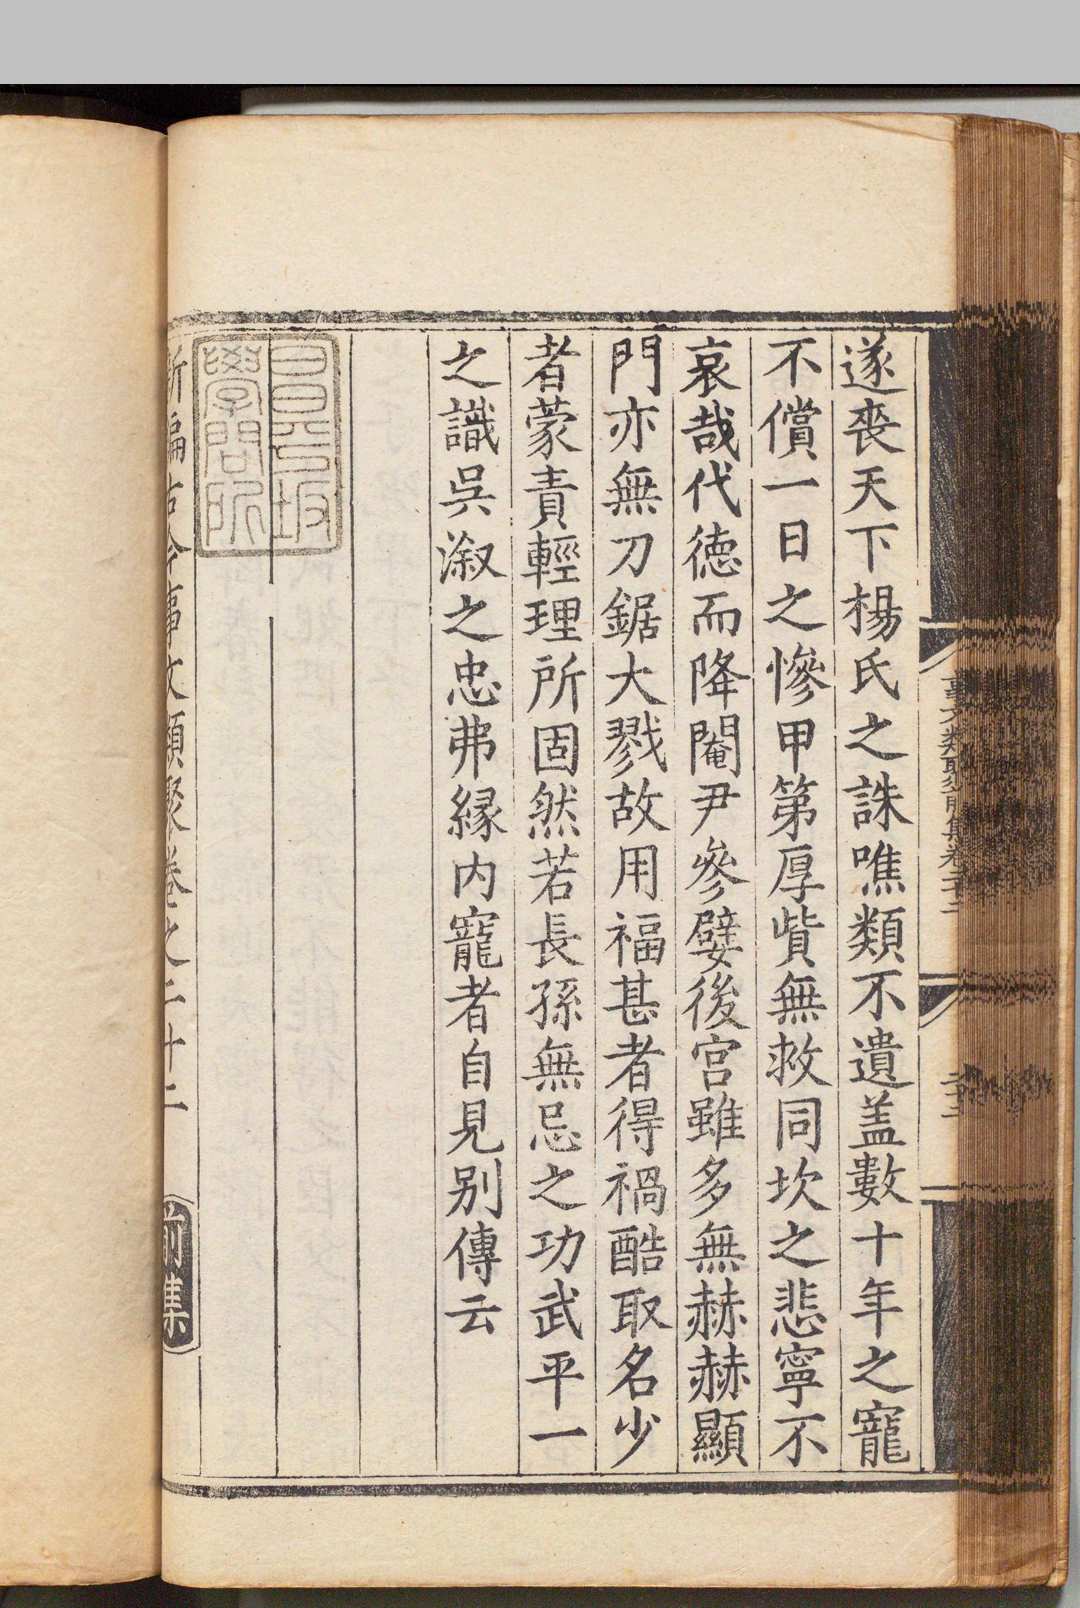 遂喪天下楊氏之誅噍類不遺盖數十年之寵
不償一日之慘甲第厚貲無救同坎之悲寧不
哀哉代德而降閹尹參嬖後宮雖多無赫赫顯
門亦無刀鋸大戮故用福甚者得禍酷取名少
者蒙責輕理所固然若長孫無忌之功武平一
之識吳溆之忠弗縁内寵者自見别傳云
昌平坂
學問所
新編古今事文類聚卷之二十二 前集
事文類聚前集卷二十二
二十二